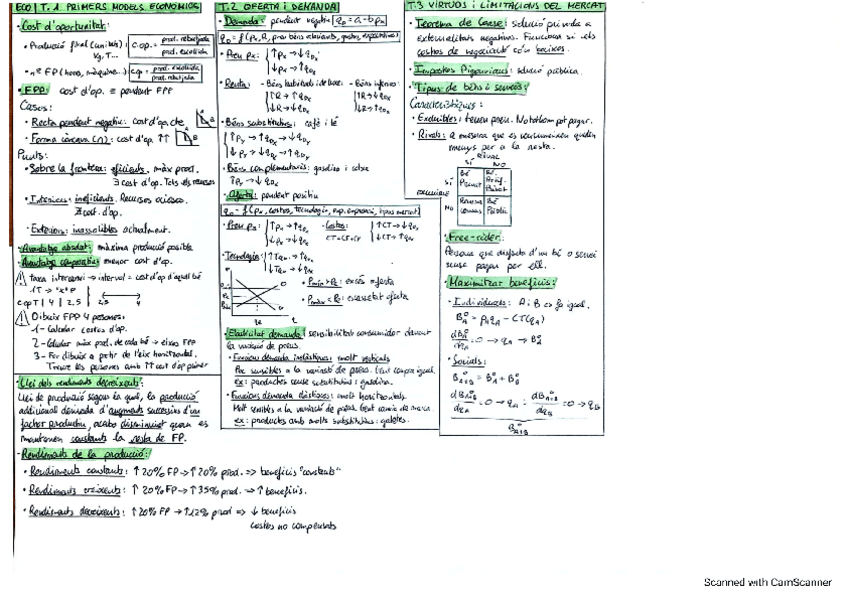 ECO | T.1 PRIMERS MODELS ECONÒMICS
· Cost d'oportunitat:
· Producció final (unitats)
Kg, T...
c.op. = prod. rebutjada / prod. escollida
· nº FP (hores, màquines...)
c.op = prod. escollida / prod. rebutjada
· FPP: cost d'op. = pendent FPP
Casos:
· Recta pendent negatiu: cost d'op. cte
· Forma còncava (∩): cost d'op. ↑↑
Punts:
· Sobre la frontera: eficients. màx prod.
∃ cost d'op. Tots els recursos
· Interiors: ineficients. Recursos ociosos.
∄ cost d'op.
· Exteriors: inassolibles actualment.
· Avantatge absolut: màxima producció possible
· Avantatge comparatiu: menor cost d'op.
taxa intercanvi → interval = cost d'op d'aquell bé
c.op T | 4 | 2,5
2,5 4
Dibuix FPP 4 persones:
1- Calcular costos d'op.
2- Calcular màx prod. de cada bé → eixos FPP
3- Fer dibuix a partir de l'eix horitzontal.
Llei dels rendiments decreixents:
Llei de producció segons la qual, la producció
addicional derivada d'augments successius d'un
factor productiu, acaba disminuint quan es
mantenen constants la resta de FP.
· Rendiments de la producció:
· Rendiments constants: ↑20% FP → ↑20% prod. => beneficis "constants"
· Rendiments creixents: ↑20% FP → ↑35% prod. → ↑ beneficis.
· Rendiments decreixents: ↑20% FP → ↑12% prod => ↓ beneficis
costos no compensats
T.2 OFERTA I DEMANDA
· Demanda: pendent negatiu | q_D = a - b p_x
· Preu px: ↑px → ↓q_Dx
↓px → ↑q_Dx
· Renta: - Béns habituals i de luxe: - Béns inferiors:
↑R → ↑q_Dx ↑R → ↓q_Dx
↓R → ↓q_Dx ↓R → ↑q_Dx
· Béns substitutius: cafè i té
· Béns complementaris: gasolina i cotxe
↑py → ↓q_Dx
· Oferta: pendent positiu
· Preu px: ↑px → ↑q_Ox · Costos: ↑CT → ↓q_Ox
↓px → ↓q_Ox CT=CF+CV ↓CT → ↑q_Ox
· Tecnologia:
· Pmin > Pe: excés oferta
· Pmax < Pe: escassetat oferta
Elasticitat demanda: sensibilitat consumidor davant
la variació de preus.
· Funcions demanda inelàstiques: molt verticals
Poc sensibles a la variació de preus. Gent compra igual.
ex: productes sense substitutius: gasolina.
· Funcions demanda elàstiques: molt horitzontals.
Molt sensibles a la variació de preus. Gent canvia de marca
ex: productes amb molts substitutius: galetes.
T.3 VIRTUTS I LIMITACIONS DEL MERCAT
· Teorema de Coase: solució privada a
externalitats negatives. Funciona si els
costos de negociació són baixos.
· Impostos Pigouvians: solució pública.
· Tipus de béns i serveis:
Característiques:
· Excluibles: tenen preu. No tothom pot pagar.
· Rivals: a mesura que es consumeixen queden
menys per a la resta.
RIVAL
SÍ NO
EXCLUIBLE
SÍ Bé Privat
NO Recursos comuns Bé Públic
· Free-rider:
Persona que disfruta d'un bé o servei
sense pagar per ell.
· Maximitzar beneficis:
· Individuals: A i B => fa igual.
B_A = p_A q_A - CT(q_A)
· Socials:
B_A+B = B_A + B_B
Scanned with CamScanner